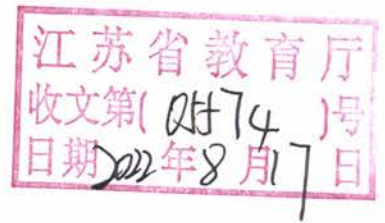 江苏省教育厅
收文第( 05574 )号
日期2022年8月17日